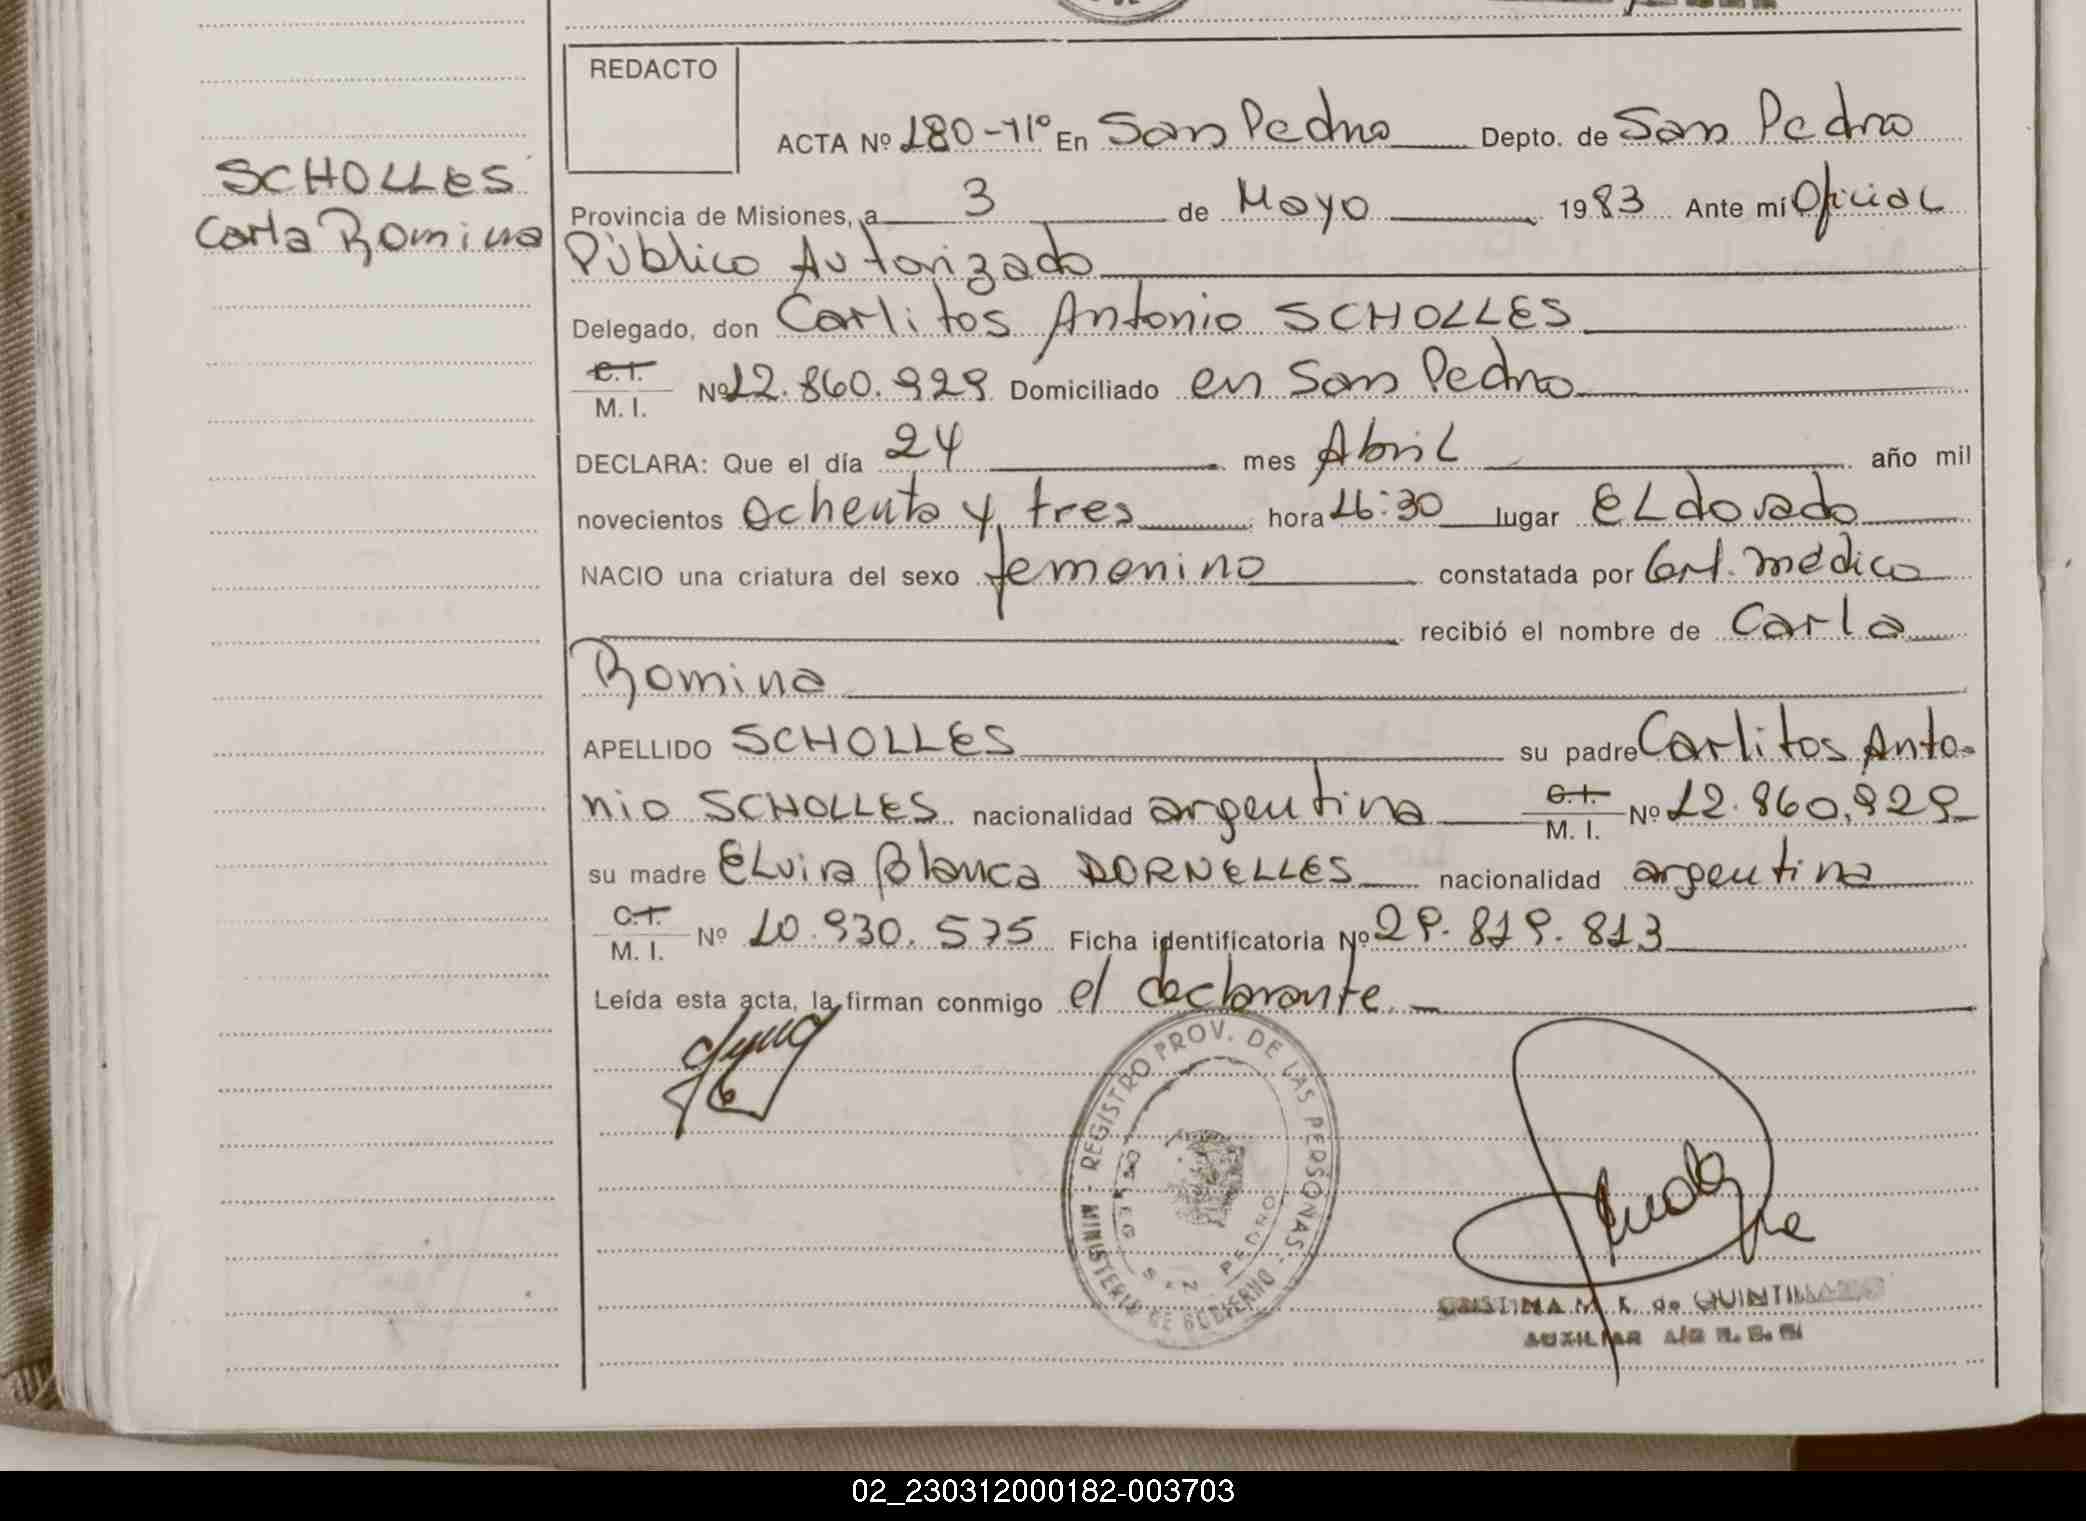 REDACTO
ACTA Nº 180-T1º En San Pedro Depto. de San Pedro
SCHOLLES
Carla Romina
Provincia de Misiones, a 3 de Mayo 1983 Ante mí Oficial
Público Autorizado
Delegado, don Carlitos Antonio SCHOLLES
C.I.
M. I. Nº 12.860.929 Domiciliado en San Pedro
DECLARA: Que el día 24 mes Abril año mil
novecientos Ochenta y tres hora 16:30 lugar ELdorado
NACIO una criatura del sexo femenino constatada por Cert. médico
recibió el nombre de Carla
Romina
APELLIDO SCHOLLES su padre Carlitos Anto-
nio SCHOLLES nacionalidad argentina C.I. M. I. Nº 12.860.929
su madre ELvira Blanca DORNELLES nacionalidad argentina
C.I.
M. I. Nº 10.930.575 Ficha identificatoria Nº 29.819.813
Leída esta acta, la firman conmigo el declarante.
MINISTERIO DE GOBIERNO - REGISTRO PROV. DE LAS PERSONAS -
PEDRO
CRISTINA M. K. de QUINTILIANO
AUXILIAR
02_230312000182-003703